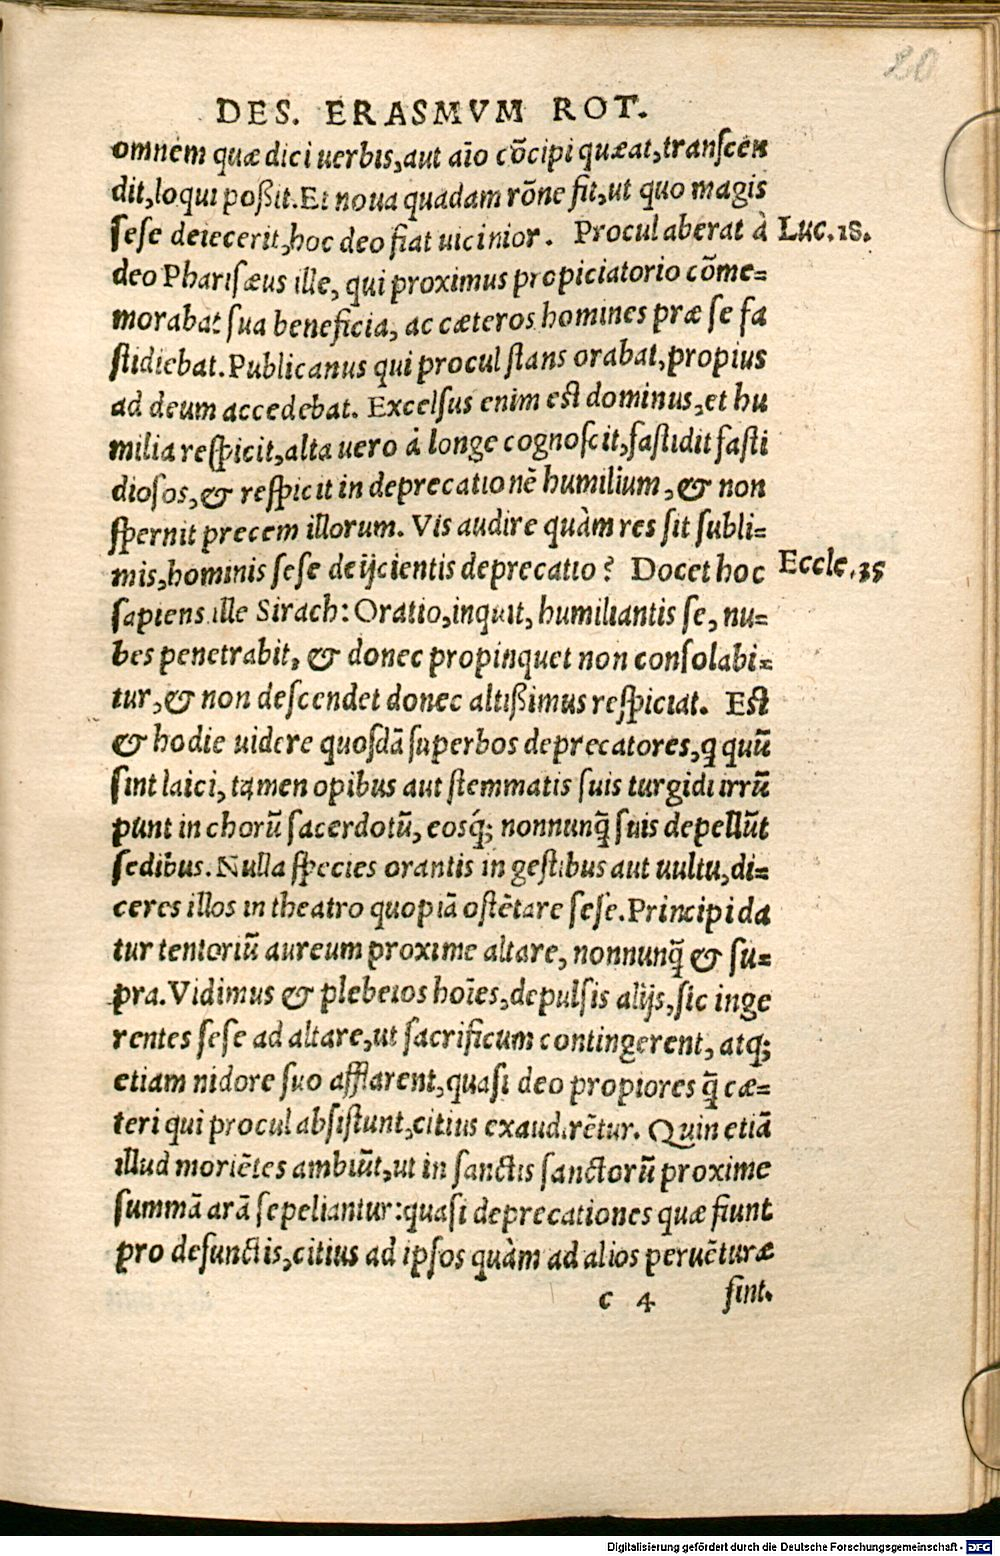 20
DES. ERASMVM ROT.
omnem quæ dici uerbis, aut aīo cōcipi quæat, transcen
dit, loqui poßit. Et noua quadam rōne fit, ut quo magis
sese deiecerit, hoc deo fiat uicinior. Procul aberat à Luc.18.
deo Pharisæus ille, qui proximus propiciatorio cōme=
morabat sua beneficia, ac cæteros homines præ se fa
stidiebat. Publicanus qui procul stans orabat, propius
ad deum accedebat. Excelsus enim est dominus, et hu
milia respicit, alta uero à longe cognoscit, fastidit fasti
diosos, & respicit in deprecationē humilium, & non
spernit precem illorum. Vis audire quàm res sit subli=
mis, hominis sese deijcientis deprecatio? Docet hoc Eccle.35
sapiens ille Sirach: Oratio, inquit, humiliantis se, nu=
bes penetrabit, & donec propinquet non consolabi=
tur, & non descendet donec altißimus respiciat. Est
& hodie uidere quosdā superbos deprecatores, q quū
sint laici, tamen opibus aut stemmatis suis turgidi irrū
punt in chorū sacerdotū, eosq́; nonnunq̄ suis depellūt
sedibus. Nulla species orantis in gestibus aut uultu, di=
ceres illos in theatro quopiā ostētare sese. Principi da
tur tentoriū aureum proxime altare, nonnunq̄ & su=
pra. Vidimus & plebeios hoīes, depulsis alijs, sic inge
rentes sese ad altare, ut sacrificum contingerent, atq;
etiam nidore suo afflarent, quasi deo propiores q̄ cæ=
teri qui procul absistunt, citius exaudirētur. Quin etiā
illud moriētes ambiūt, ut in sanctis sanctorū proxime
summā arā sepeliantur: quasi deprecationes quæ fiunt
pro defunctis, citius ad ipsos quàm ad alios peruēturæ
c 4 sint.
Digitalisierung gefördert durch die Deutsche Forschungsgemeinschaft - DFG